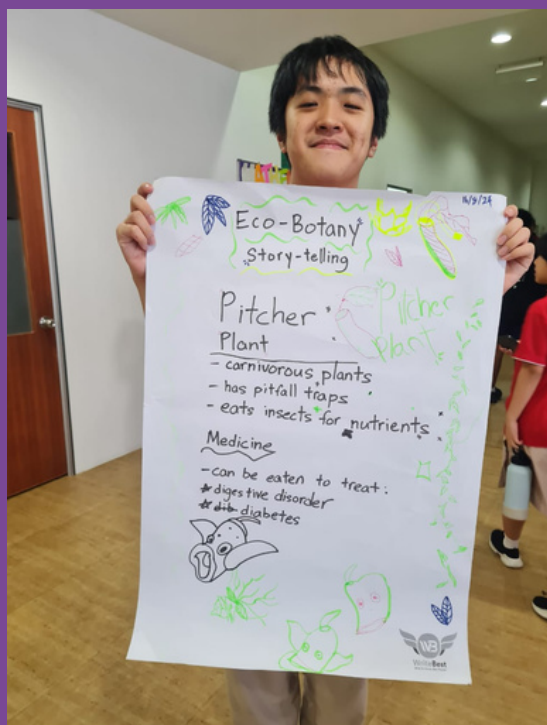 16/8/24
Eco-Botany
Story-telling
Pitcher
Plant
Pitcher
Plant
- carnivorous plants
- has pitfall traps
- eats insects for nutrients
Medicine
- can be eaten to treat:
* digestive disorder
* dib diabetes
WB
WriteBest